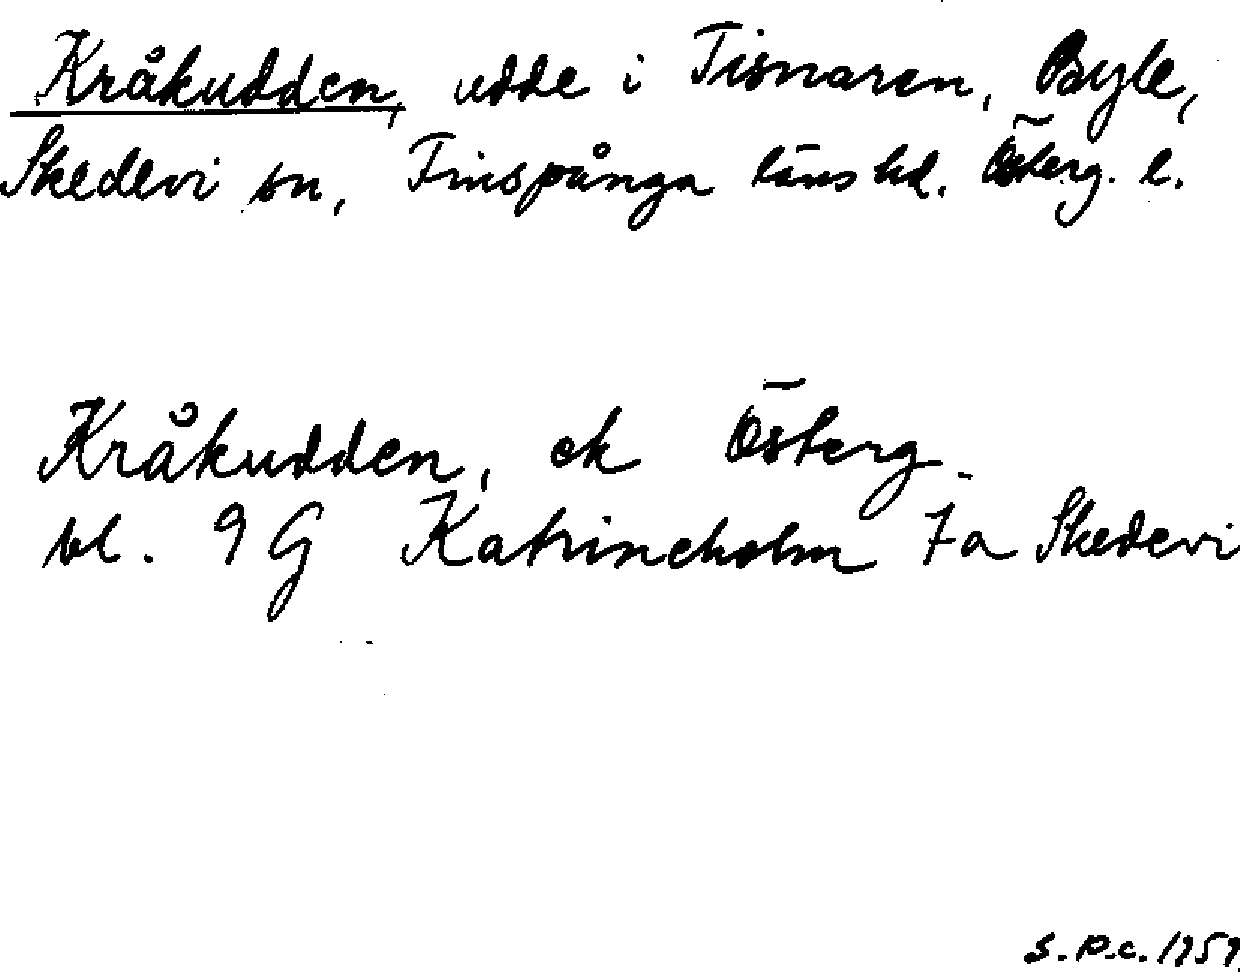 Kråkudden, udde i Tisnaren, Byle,
Skedevi sn, Finspånga läns hd. Österg. l.
Kråkudden, ek Österg.
bl. 9 G Katrineholm 7a Skedevi
S.P.C. 1959